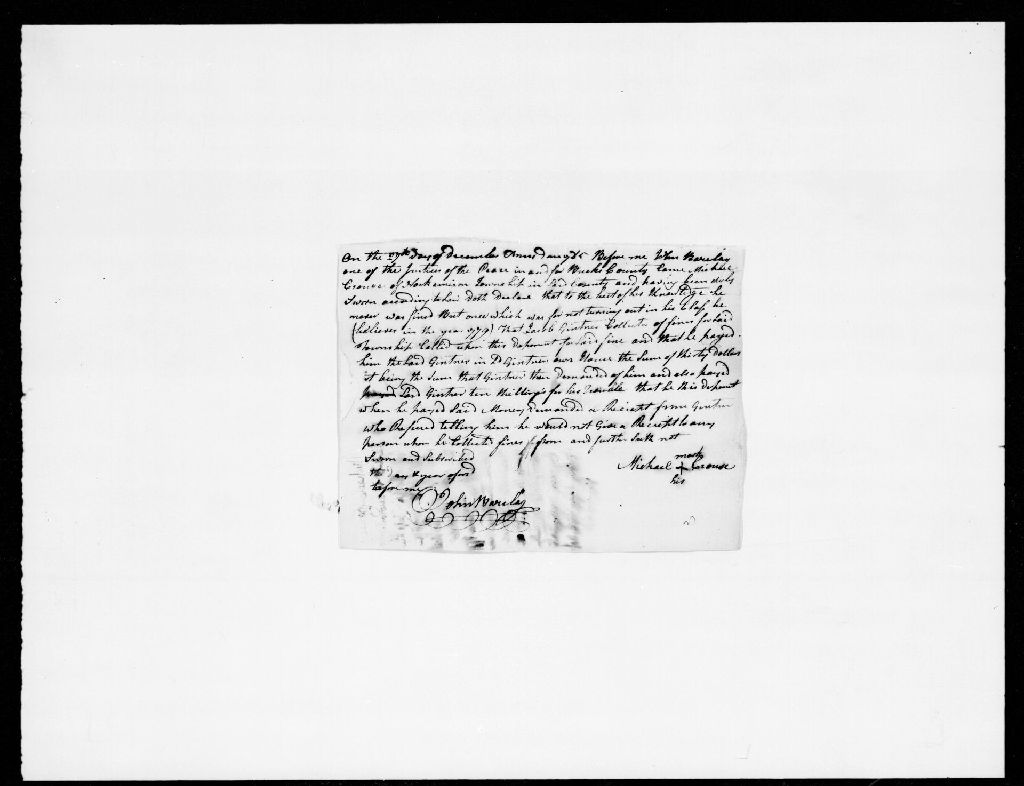 On the 19th Day of December Before me John Barclay
one of the Justices of the Peace in and for Bucks County Came Michael
Crouse of Township in said County and having been duly
Sworn according to law Doth Declare that to the best of his Knowledge he
never was fined But once which was for not turning out in his Class he
(believes in the year 1779) That Jacob Gintner Collector of fines for said
Township Called upon this deponent for said fine and that he payed
him the said Gintner in Gintner own House the Sum of thirty dollars
it being the Sum that Gintner then demanded of him and also payed
Said Gintner ten Shillings for his Trouble that he this deponent
when he payed Said Money demanded a Reciept from Gintner
who Refused telling him he would not Give a Reciept to any
person whom he Collects fines from and further Saith not
Sworn and Subscribed
the Day & year aforsd
before me
John Barclay
mark
Michael + Crouse
his